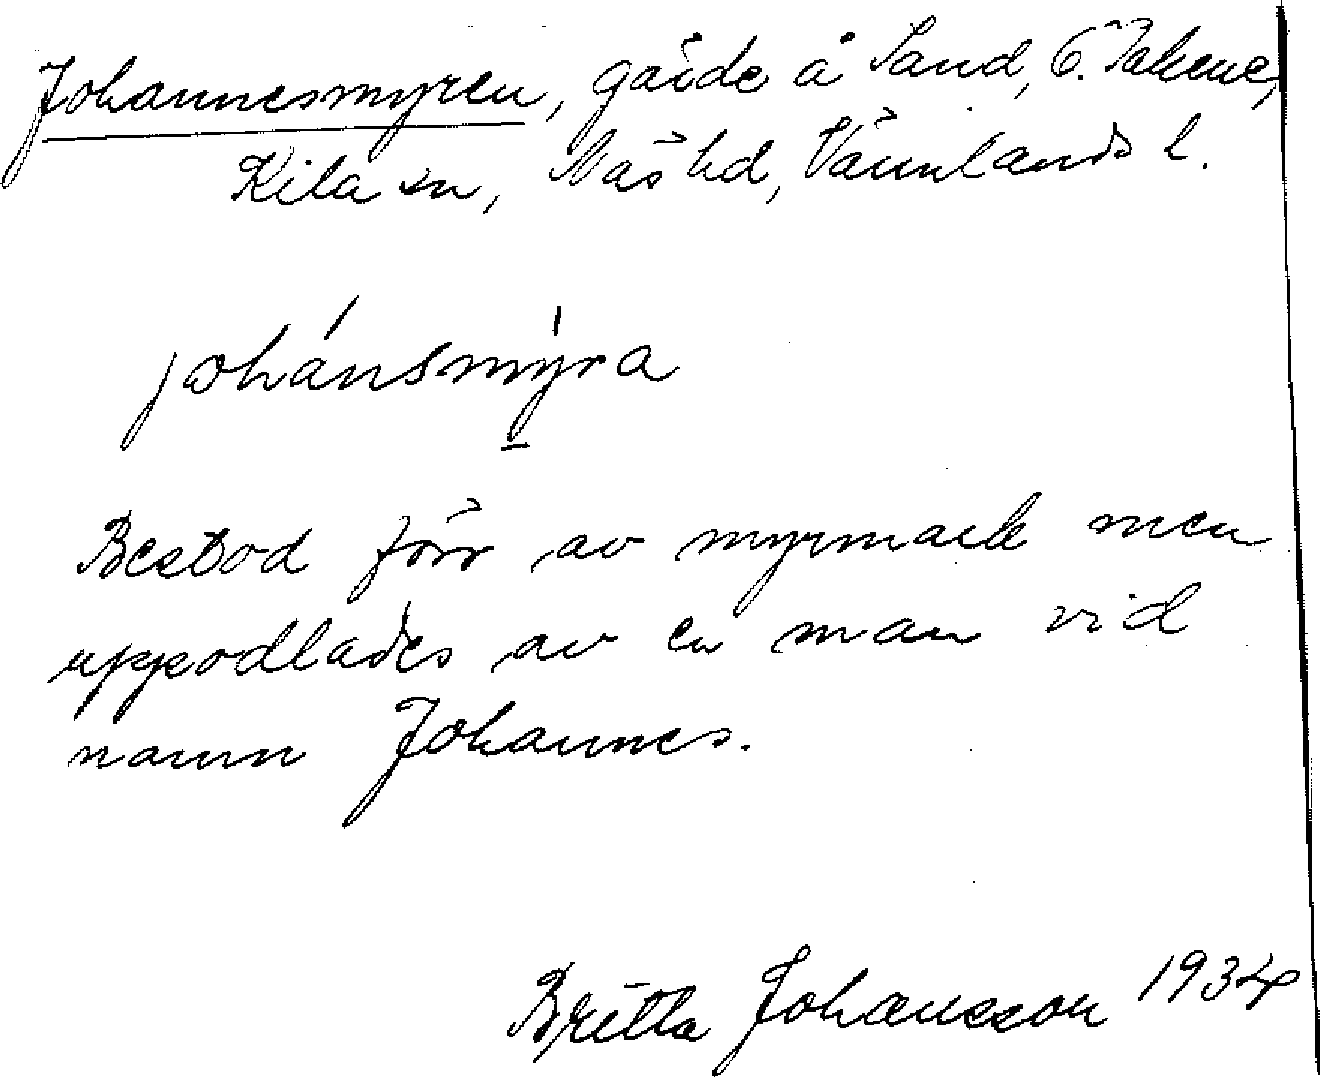 Johannesmyren, gärde å Sand, Ö. Takene,
Kila sn, Näs hd, Värmlands l.
johánsmýra
Bestod förr av myrmark men
uppodlades av en man vid
namn Johannes.
Britta Johansson 1934